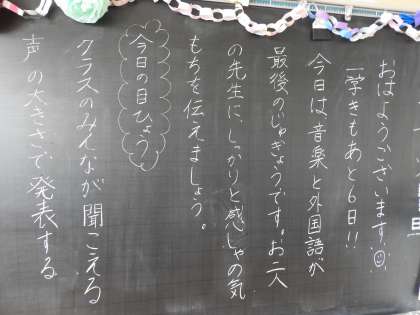 おはようございます☺
一学きもあと6日!!
今日は音楽と外国語が
最後のじゅぎょうです。お二人
の先生に、しっかりと感しゃの気
もちを伝えましょう。
今日の目ひょう
クラスのみんなが聞こえる
声の大きさで発表する